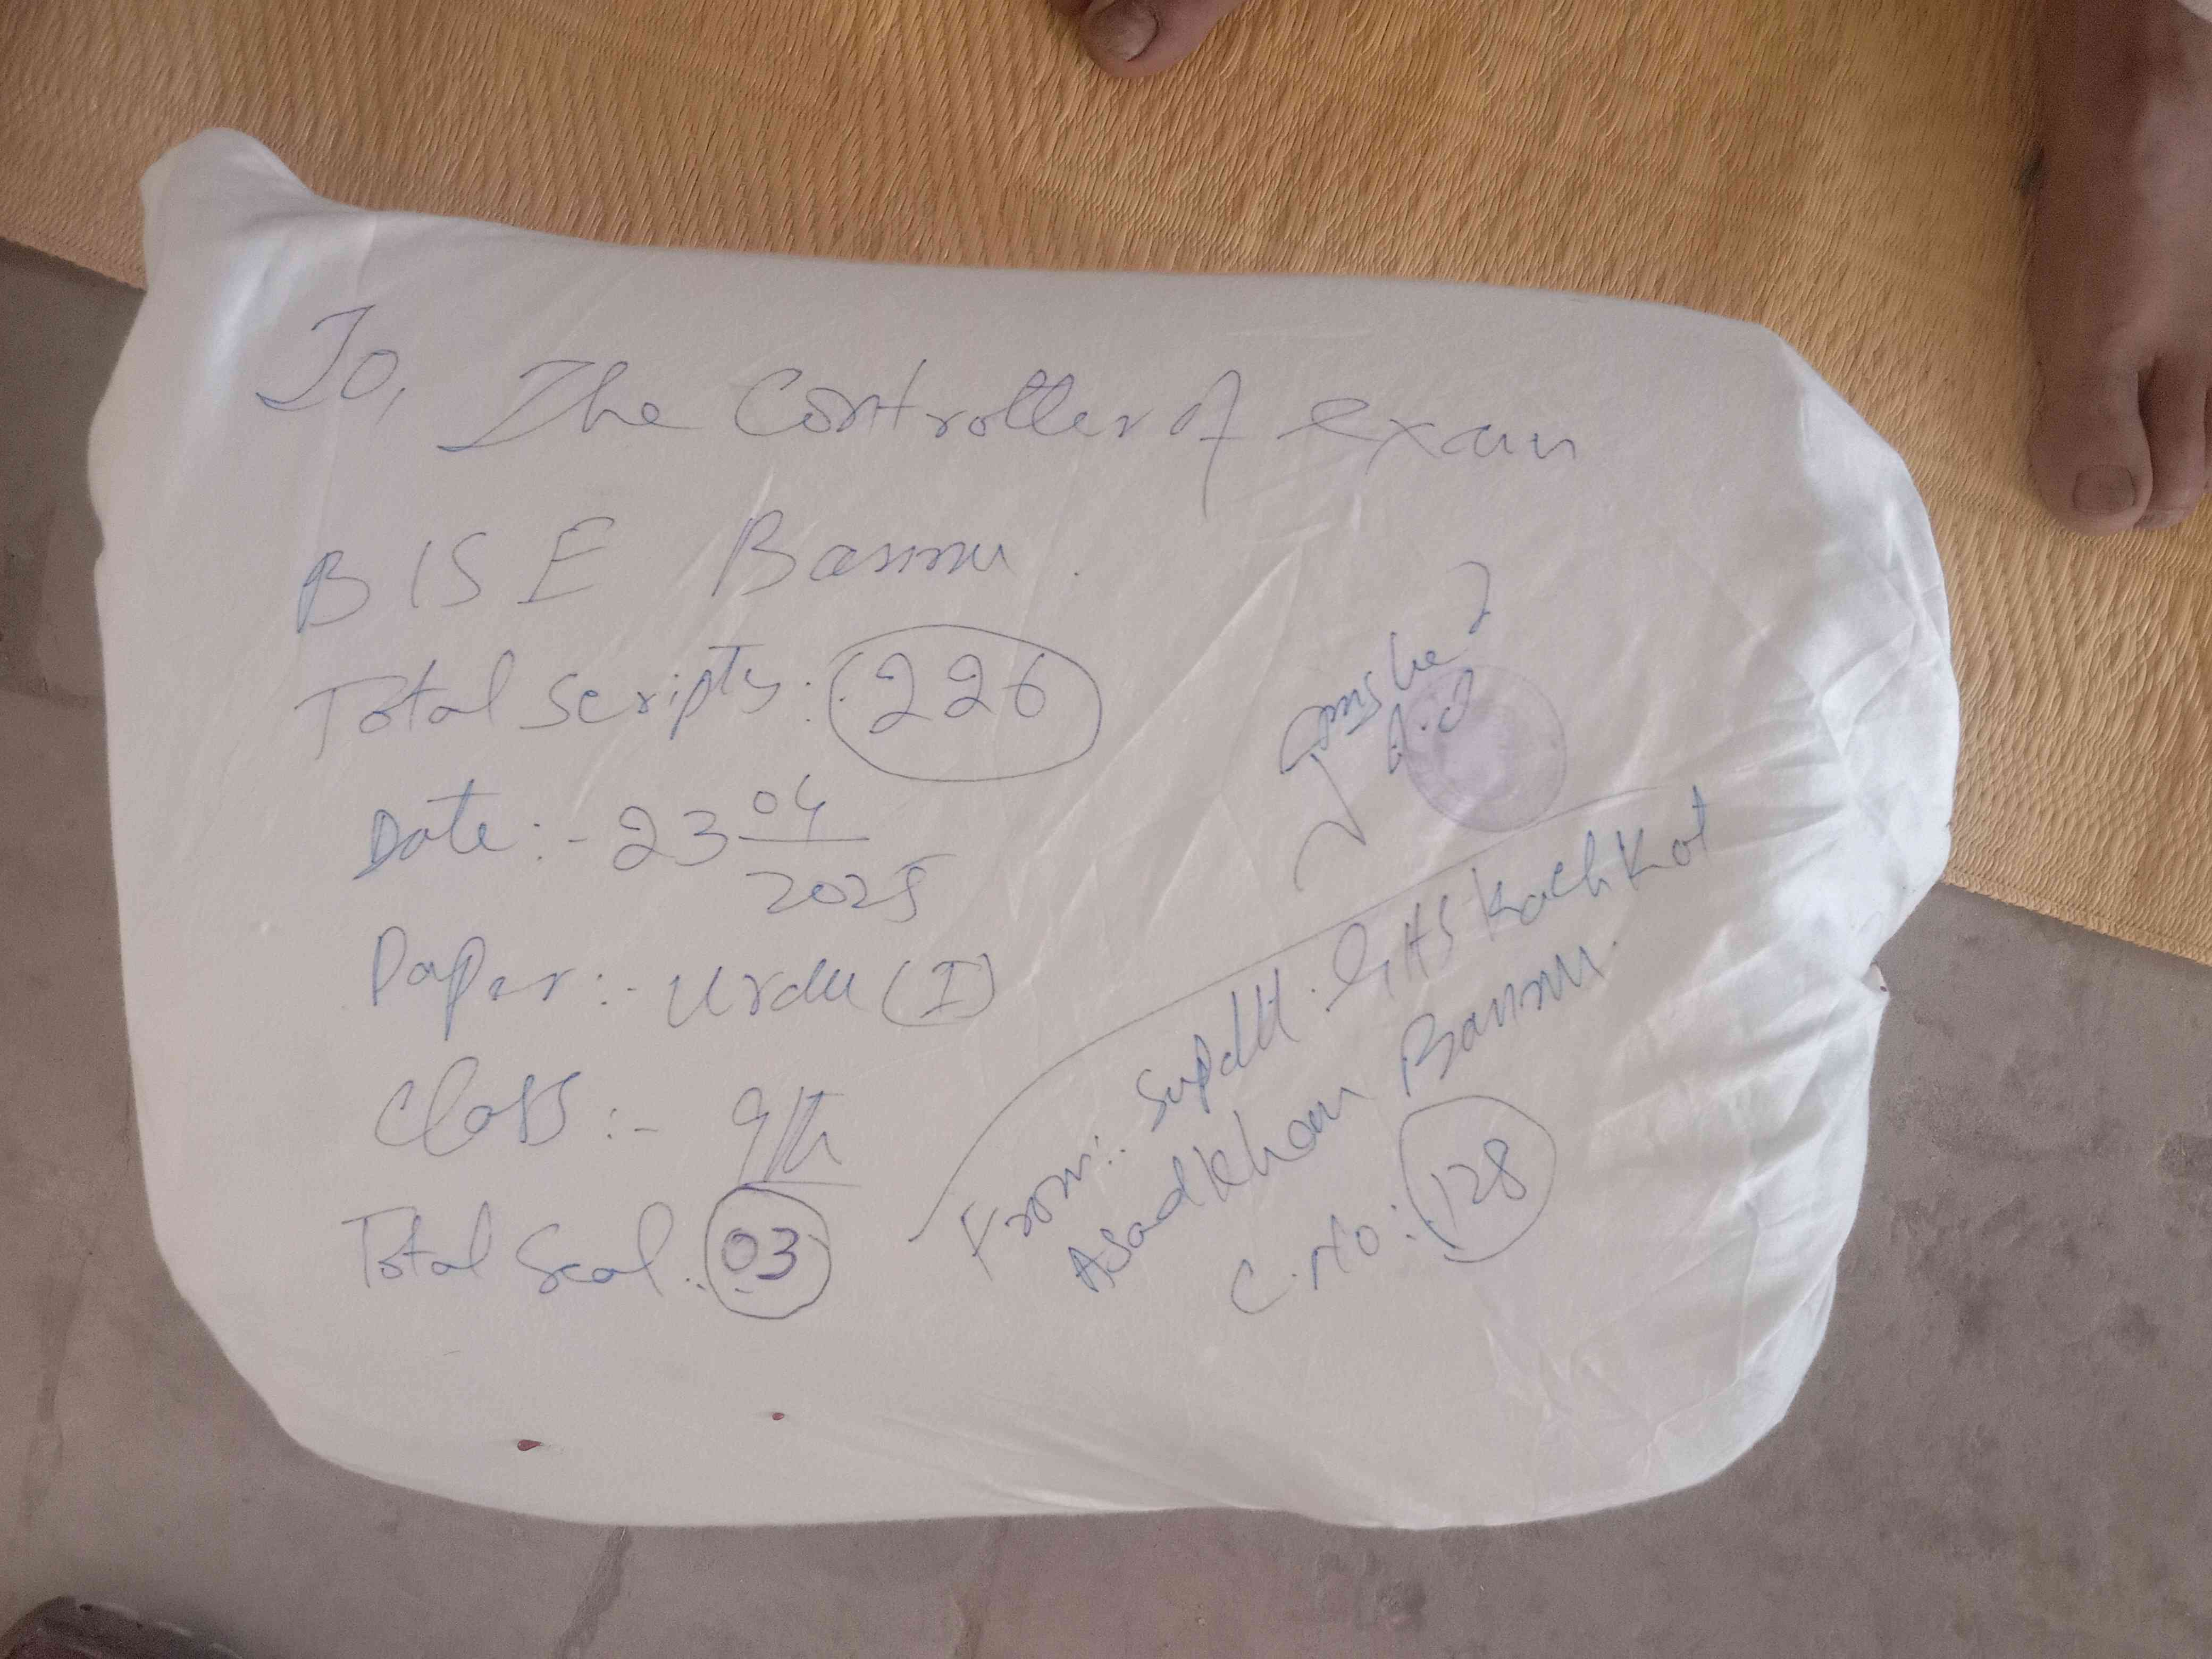 To,
The Controller of exam
BISE Bannu.
Total Scripts:- 226
Date:- 23 04/2025
Paper:- Urdu (I)
Class:- 9th
Total Seal:- 03
From:- Supdtt. GHS Kach Kot
Asad Khan Bannu.
C.No:- 128